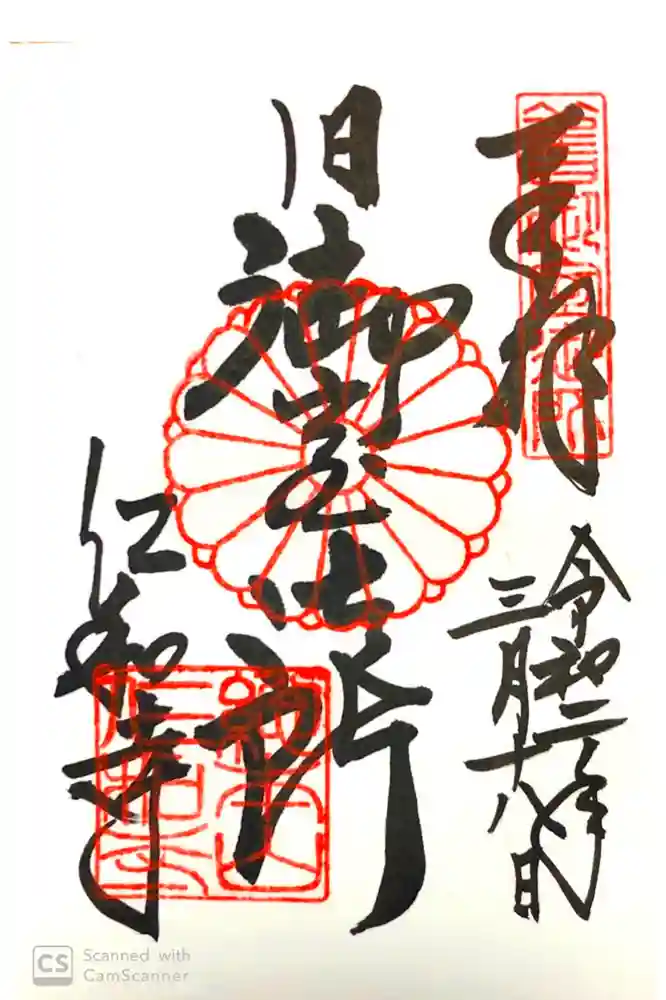 奉拝
令和二年
三月十八日
旧御室御所
仁和寺
Scanned with
CamScanner